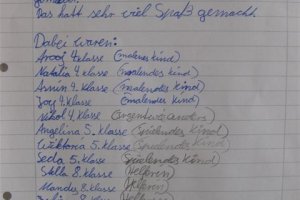 Das hat sehr viel Spaß gemacht.
Dabei waren:
Arooj 4. Klasse (malendes Kind)
Natalia 4. Klasse (malendes Kind)
Armin 4. Klasse (malendes Kind)
4. Klasse (malendes Kind)
Nikol 4. Klasse
Angelina 5. Klasse (Spielendes Kind)
Wiktoria 5. Klasse (Spielendes Kind)
Seda 5. Klasse (Spielendes Kind)
Stella 8. Klasse (Helferin)
8. Klasse (Helferin)